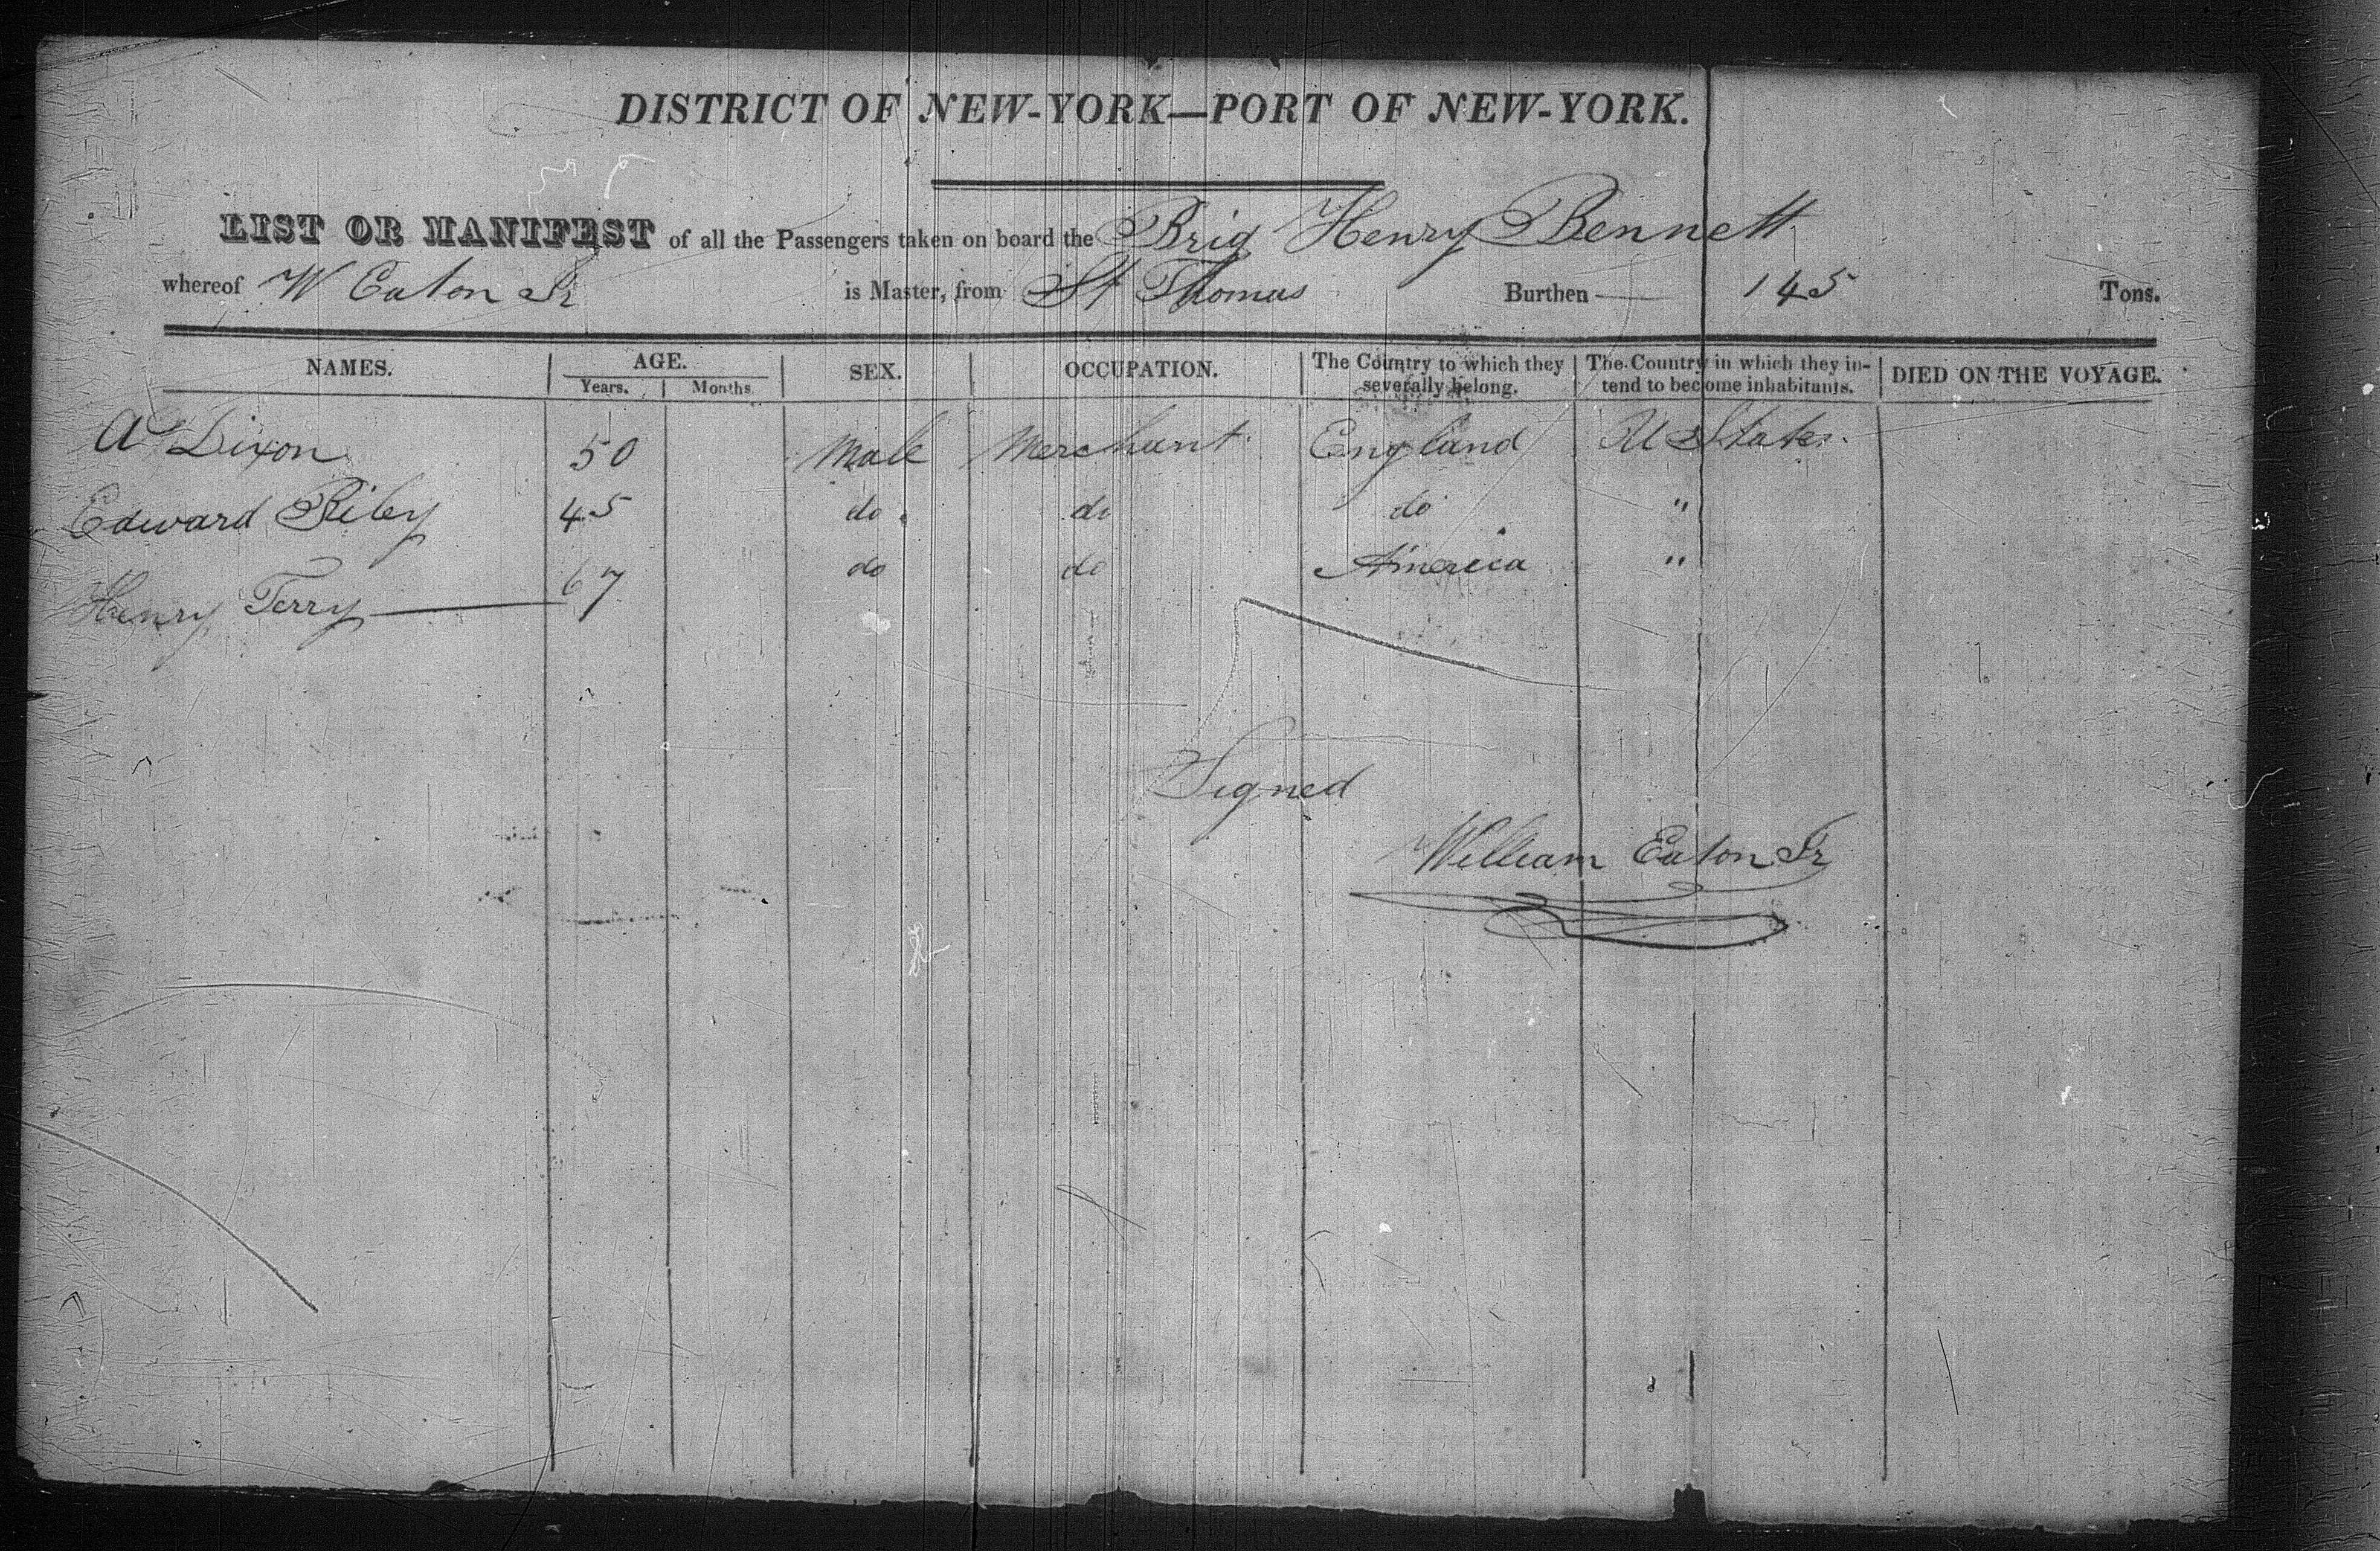 DISTRICT OF NEW-YORK—PORT OF NEW-YORK.
LIST OR MANIFEST of all the Passengers taken on board the Brig Henry Bennett
whereof W Eaton Jr is Master, from St Thomas Burthen 145 Tons.
NAMES. AGE. SEX. OCCUPATION. The Country to which they severally belong. The Country in which they intend to become inhabitants. DIED ON THE VOYAGE.
Years. Months
A Dixon 50 Male Merchant England U States
Edward Riley 45 do do do "
Henry Terry 67 do do America "
Signed
William Eaton Jr